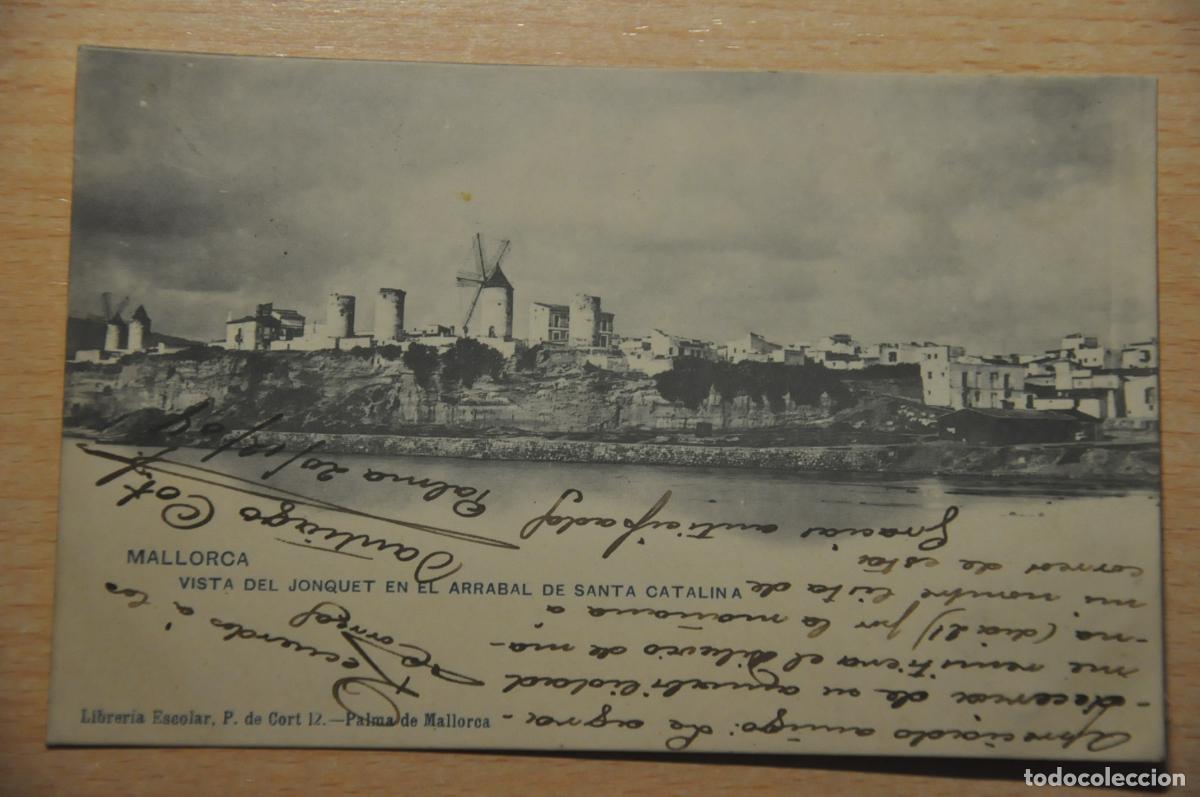 MALLORCA
VISTA DEL JONQUET EN EL ARRABAL DE SANTA CATALINA
Librería Escolar, P. de Cort 12.—Palma de Mallorca
Apreciado amigo: Le agra-
-decería de su amabilidad
me remitiera el diluvio de ma-
-na (dia 21) por la mañana á
mi nombre lista de
correos de esta
Gracias anticipadas
Palma 20/12/
Santiago Cot
Recuerdos a los
todocoleccion